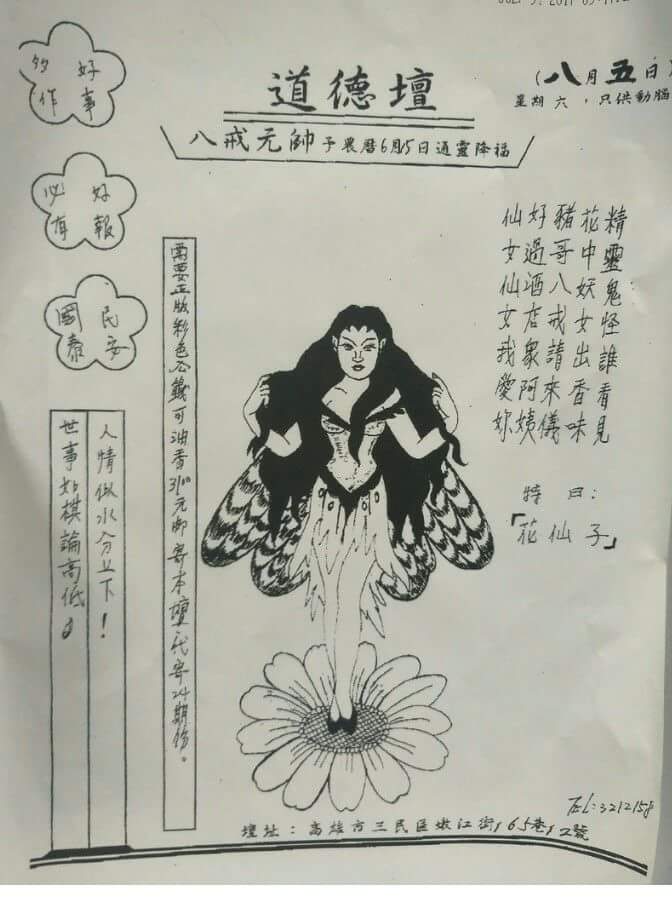 道德壇
(八月五日)
星期六，只供動腦
八戒元帥于農曆6月15日通靈降福
好事
多作
好報
必有
民安
國泰
精靈鬼怪誰看見
花中妖女出香味
豬哥八戒請來儀
好過酒店眾阿姨
仙女仙女我愛妳
特曰：
「花仙子」
需要正版彩色公籤可油香元郵寄本壇代寄24期份。
人情似水分上下！
世事如棋論高低。
TEL:3212158
壇址：高雄市三民區嫩江街165巷12號